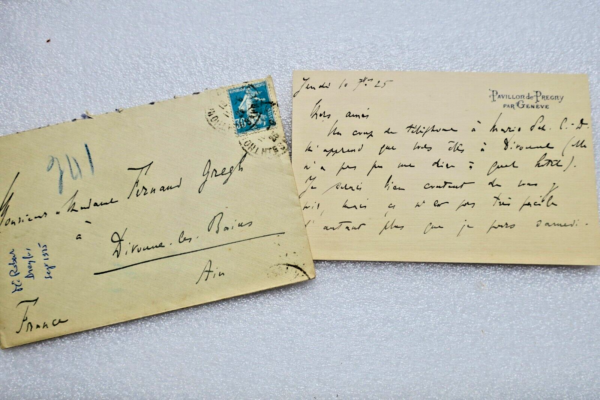 241
Monsieur - Madame Fernand Gregh
à
Divonne-les-Bains
Ain
France
Jeudi 10 7bre 25
PAVILLON de PREGNY
PAR GENÈVE
Chers amis
Un coup de téléphone à
m'apprend que vous êtes à Divonne (elle
n'a pas pu me dire à quel hôtel).
Je serais bien content de vous
voir, mais ça n'est pas très facile
d'autant plus que je pars samedi.